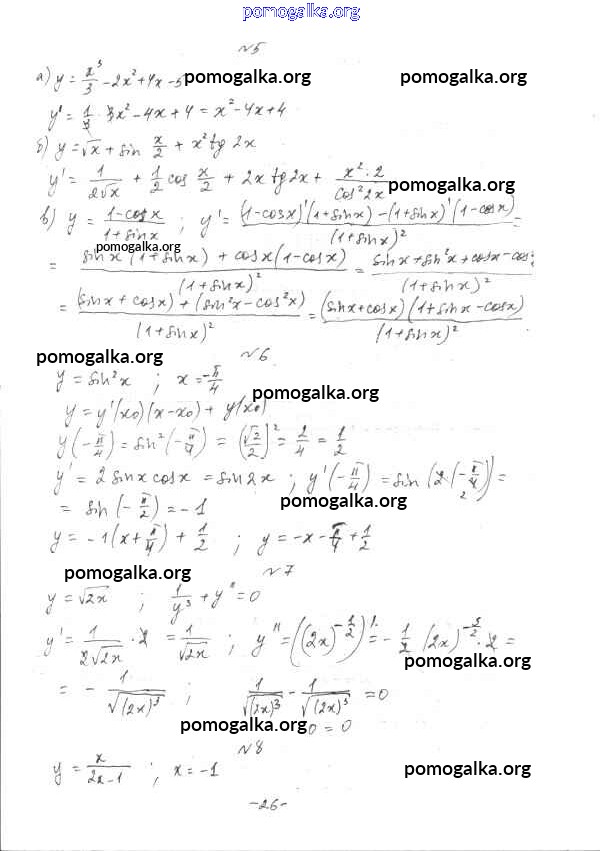 pomogalka.org
№5
а) y = x³/3 - 2x² + 4x - 5 pomogalka.org pomogalka.org
y' = 1/3 · 3x² - 4x + 4 = x² - 4x + 4
б) y = √x + sin x/2 + x² tg 2x
y' = 1/(2√x) + 1/2 cos x/2 + 2x tg 2x + (x² · 2)/(cos² 2x) pomogalka.org
в) y = (1-cos x)/(1+sin x) ; y' = ((1-cos x)'(1+sin x) - (1+sin x)'(1-cos x))/(1+sin x)² =
pomogalka.org
= (sin x (1+sin x) + cos x (1-cos x))/(1+sin x)² = (sin x + sin² x + cos x - cos²)/(1+sin x)²
= ((sin x + cos x) + (sin² x - cos² x))/(1+sin x)² = ((sin x + cos x)(1 + sin x - cos x))/(1+sin x)²
pomogalka.org
№6
y = sin² x ; x = -π/4
pomogalka.org
y = y'(x₀)(x-x₀) + y(x₀)
y(-π/4) = sin²(-π/4) = (√2/2)² = 2/4 = 1/2
y' = 2 sin x cos x = sin 2x ; y'(-π/4) = sin(2(-π/4)) =
pomogalka.org
= sin(-π/2) = -1
y = -1(x + π/4) + 1/2 ; y = -x - π/4 + 1/2
pomogalka.org
№7
y = √2x ; 1/y³ + y'' = 0
y' = 1/(2√2x) · 2 = 1/√2x ; y'' = ((2x)^(-1/2))' = -1/2 (2x)^(-3/2) · 2 =
pomogalka.org
= - 1/√(2x)³ ; 1/√(2x)³ - 1/√(2x)³ = 0
pomogalka.org 0 = 0
№8
y = x/(2x-1) ; x = -1 pomogalka.org
-26-